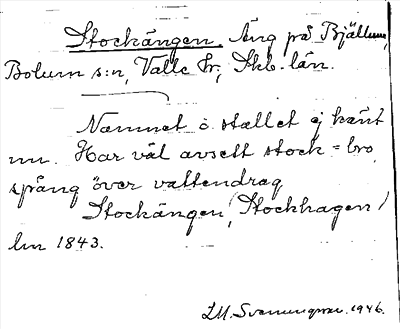 Stockängen. Äng på Bjällum,
Bolum s:n, Valle hr; Skb. län.
Namnet o. stället ej känt
nu. Har väl avsett stock = bro,
spång över vattendrag
Stockängen (Stockhagen)
Lm 1843.
1946.